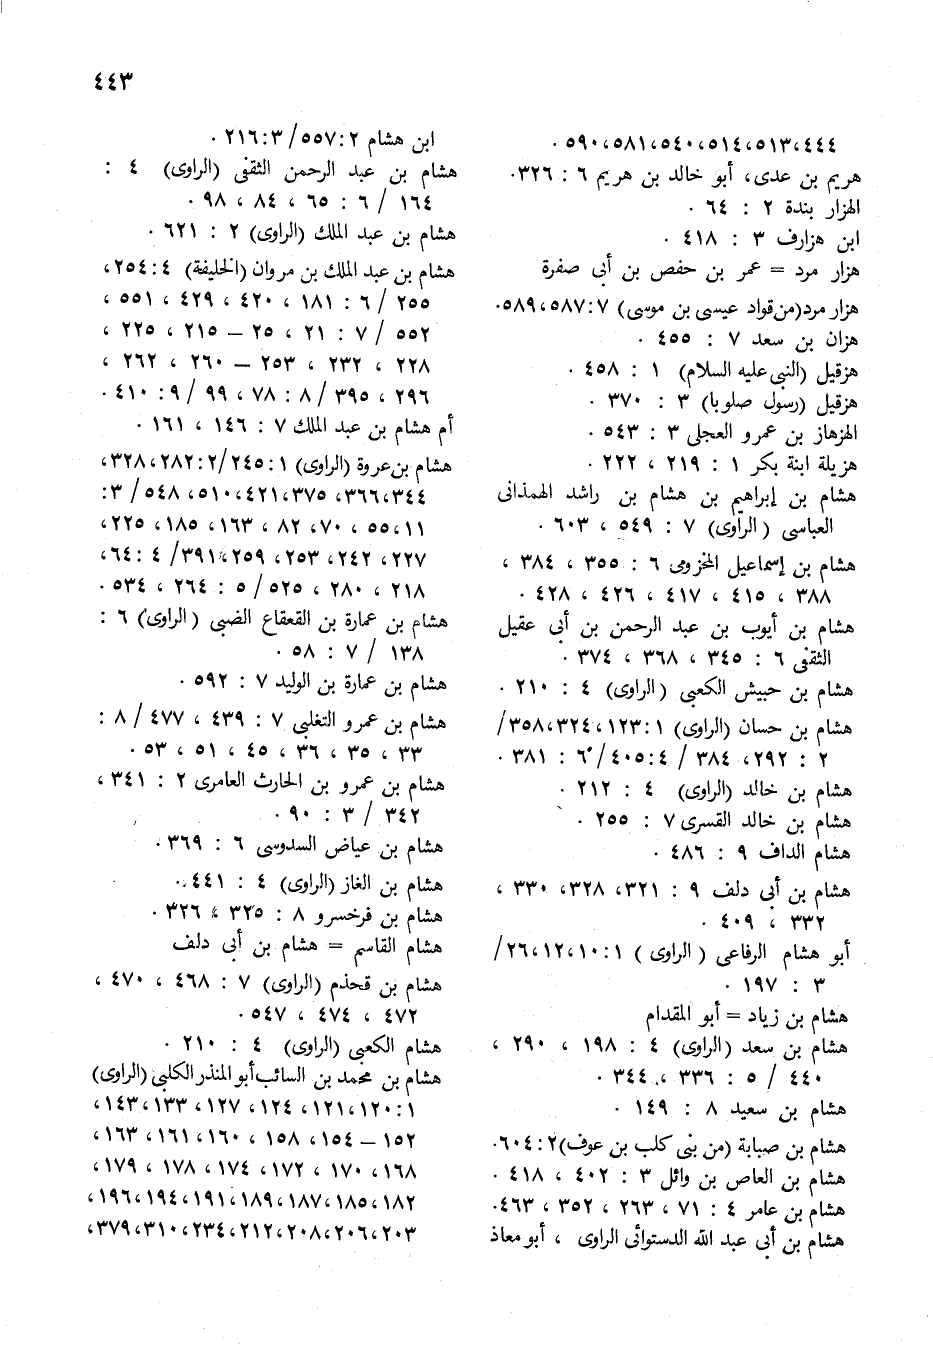 ٤٤٣
٤٤٤،٥١٣،٥١٤،٥٤٠،٥٨١،٥٩٠ .
هريم بن عدى، أبو خالد بن هريم ٦ : ٣٢٦.
الهزار بندة ٢ : ٦٤ .
ابن هزارف ٣ : ٤١٨ .
هزار مرد = عمر بن حفص بن أبى صفرة
هزار مرد(من قواد عيسى بن موسى) ٧: ٥٨٧،٥٨٩.
هزان بن سعد ٧ : ٤٥٥ .
هزقيل (النبى عليه السلام) ١ : ٤٥٨ .
هزقيل (رسول صلوبا) ٣ : ٣٧٠ .
الهزهاز بن عمرو العجلى ٣ : ٥٤٣ .
هزيلة ابنة بكر ١ : ٢١٩ ، ٢٢٢ .
هشام بن إبراهيم بن هشام بن راشد الهمذانى
العباسى (الراوى) ٧ : ٥٤٩ ، ٦٠٣ .
هشام بن إسماعيل المخزومى ٦ : ٣٥٥ ، ٣٨٤ ،
٣٨٨ ، ٤١٥ ، ٤١٧ ، ٤٢٦ ، ٤٢٨ .
هشام بن أيوب بن عبد الرحمن بن أبى عقيل
الثقفى ٦ : ٣٤٥ ، ٣٦٨ ، ٣٧٤ .
هشام بن حبيش الكعبى (الراوى) ٤ : ٢١٠ .
هشام بن حسان (الراوى) ١: ١٢٣،٣٢٤،٣٥٨/
٢ : ٢٩٢، ٣٨٤ / ٤: ٤٠٥/ ٦ : ٣٨١ .
هشام بن خالد (الراوى) ٤ : ٢١٢ .
هشام بن خالد القسرى ٧ : ٢٥٥ .
هشام الداف ٩ : ٤٨٦ .
هشام بن أبى دلف ٩ : ٣٢١، ٣٢٨، ٣٣٠ ،
٣٣٢ ، ٤٠٩ .
أبو هشام الرفاعى (الراوى) ١: ١٠،١٢،٢٦/
٣ : ١٩٧ .
هشام بن زياد = أبو المقدام
هشام بن سعد (الراوى) ٤ : ١٩٨ ، ٢٩٠ ،
٤٤٠ / ٥ : ٣٣٦ ، ٣٤٤ .
هشام بن سعيد ٨ : ١٤٩ .
هشام بن صبابة (من بنى كلب بن عوف)٢: ٦٠٤.
هشام بن العاص بن وائل ٣ : ٤٠٢ ، ٤١٨ .
هشام بن عامر ٤ : ٧١ ، ٢٦٣ ، ٣٥٢ ، ٤٦٣.
هشام بن أبى عبد الله الدستوائى الراوى ، أبو معاذ
ابن هشام ٢: ٥٥٧/ ٣: ٢١٦ .
هشام بن عبد الرحمن الثقفى (الراوى) ٤ :
١٦٤ / ٦ : ٦٥ ، ٨٤ ، ٩٨ .
هشام بن عبد الملك (الراوى) ٢ : ٦٢١ .
هشام بن عبد الملك بن مروان (الخليفة) ٤: ٢٥٤،
٢٥٥ / ٦ : ١٨١ ، ٤٢٠ ، ٤٢٩ ، ٥٥١ ،
٥٥٢ / ٧ : ٢١ ، ٢٥ – ٢١٥ ، ٢٢٥ ،
٢٢٨ ، ٢٣٢ ، ٢٥٣ – ٢٦٠ ، ٢٦٢ ،
٢٩٦ ، ٣٩٥ / ٨ : ٧٨ ، ٩٩ / ٩ : ٤١٠ .
أم هشام بن عبد الملك ٧ : ١٤٦ ، ١٦١ .
هشام بن عروة (الراوى) ١: ٢٤٥ /٢: ٢٨٢،٣٢٨،
٣٤٤،٣٦٦، ٣٧٥، ٤٢١،٥١٠، ٥٤٨ / ٣:
١١،٥٥ ،٧٠، ٨٢ ، ١٦٣، ١٨٥ ،٢٢٥،
٢٢٧، ٢٤٢ ، ٢٥٣، ٢٥٩ ،٣٩١/ ٤ :٦٤،
٢١٨ ، ٢٨٠ ، ٥٢٥/ ٥ : ٢٦٤ ، ٥٣٤ .
هشام بن عمارة بن القعقاع الضبى (الراوى) ٦ :
١٣٨ / ٧ : ٥٨ .
هشام بن عمارة بن الوليد ٧ : ٥٩٢ .
هشام بن عمرو التغلبى ٧ : ٤٣٩ ، ٤٧٧ / ٨ :
٣٣ ، ٣٥ ، ٣٦ ، ٤٥ ، ٥١ ، ٥٣ .
هشام بن عمرو بن الحارث العامرى ٢ : ٣٤١ ،
٣٤٢ / ٣ : ٩٠ .
هشام بن عياض السدوسى ٦ : ٣٦٩ .
هشام بن الغاز (الراوى) ٤ : ٤٤١ .
هشام بن فرخسرو ٨ : ٣٢٥ ، ٣٢٦ .
هشام القاسم = هشام بن أبى دلف
هشام بن قحذم (الراوى) ٧ : ٤٦٨ ، ٤٧٠ ،
٤٧٢ ، ٤٧٤ ، ٥٤٧ .
هشام الكعبى (الراوى) ٤ : ٢١٠ .
هشام بن محمد بن السائب أبو المنذر الكلبى (الراوى)
١: ١٢٠،١٢١، ١٢٤ ، ١٢٧ ،١٣٣ ،١٤٣،
١٥٢ – ١٥٤، ١٥٨ ، ١٦٠ ،١٦١ ،١٦٣،
١٦٨ ، ١٧٠ ، ١٧٢ ، ١٧٤ ، ١٧٨ ،١٧٩،
١٨٢ ،١٨٥، ١٨٧ ،١٨٩، ١٩١، ١٩٤ ،١٩٦،
٢٠٣،٢٠٦،٢٠٨،٢١٢،٢٣٤،٣١٠،٣٧٩،